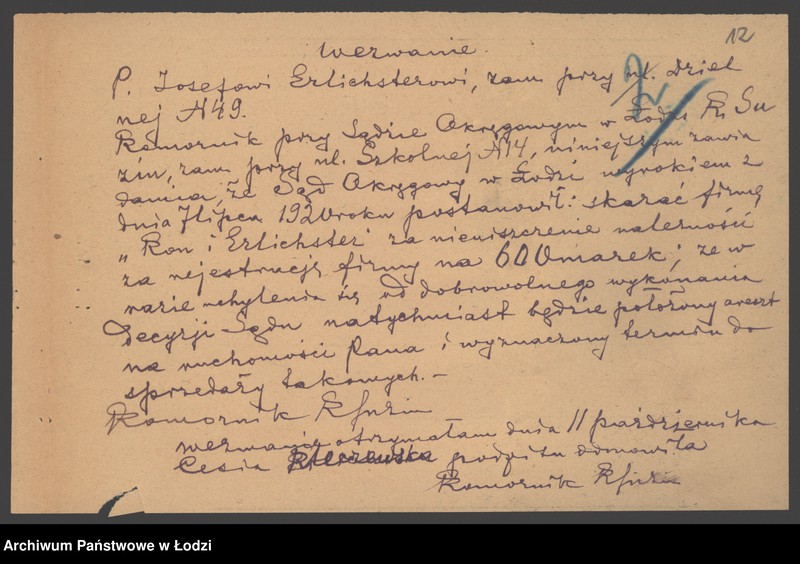 12
Wezwanie.
P. Josefowi Erlichsterowi, zam. przy ul. Dziel
nej N49.
2
Komornik przy Sądzie Okręgowym w Łodzi K. Su
zin, zam. przy ul. Szkolnej N14, niniejszym zawia
damia, że Sąd Okręgowy w Łodzi wyrokiem z
dnia 7 lipca 1920 roku postanowił: skazać firmę
"Kon i Erlichster" za nieuiszczenie należności
za rejestrację firmy na 600 marek; że w
razie uchylenia się od dobrowolnego wykonania
decyzji Sądu natychmiast będzie położony areszt
na ruchomości Pana i wyznaczony termin do
sprzedaży takowych.—
Komornik KSuzin
wezwanie otrzymałam dnia 11 października
Cesia podpisu odmówiła
Komornik KSuzin
Archiwum Państwowe w Łodzi